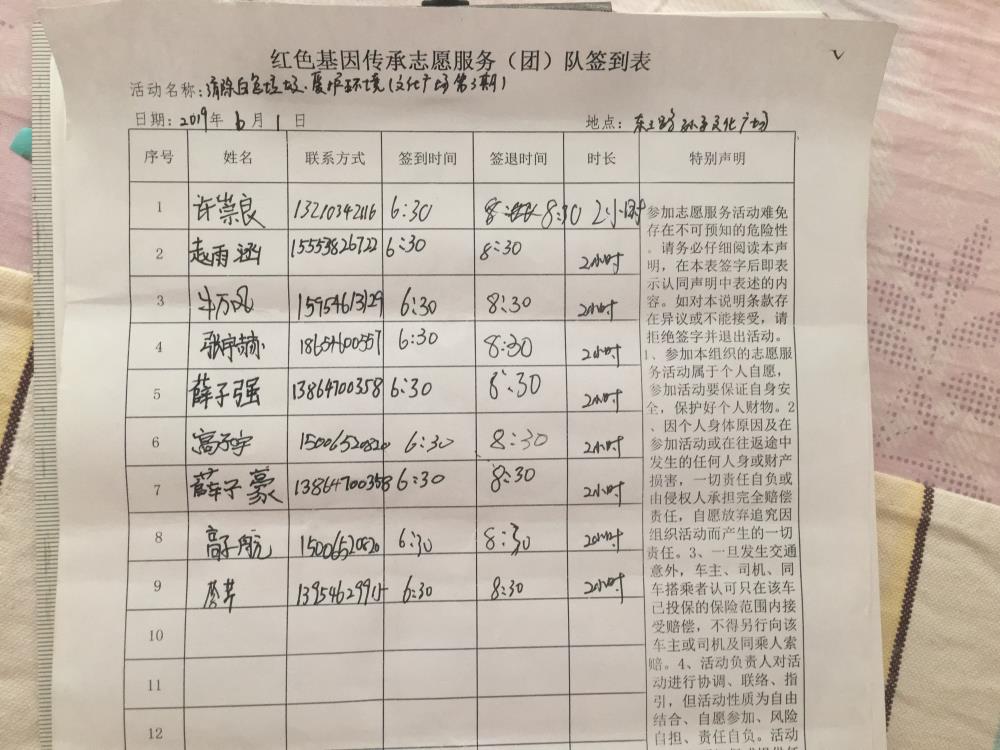 红色基因传承志愿服务（团）队签到表
活动名称：清除白色垃圾、爱护环境(文化广场第3期)
日期：2019年 6 月 1 日 地点：东二路孙子文化广场
序号 姓名 联系方式 签到时间 签退时间 时长 特别声明
1 许崇良 13210342116 6:30 8:30 2小时
2 赵雨涵 15553826722 6:30 8:30 2小时
3 牛万风 15954613129 6:30 8:30 2小时
4 张宇赫 18654600557 6:30 8:30 2小时
5 薛子强 13864700358 6:30 8:30 2小时
6 高子宇 15006520820 6:30 8:30 2小时
7 薛子豪 13864700358 6:30 8:30 2小时
8 高子航 15006520820 6:30 8:30 2小时
9 6:30 8:30 2小时
10
11
12
参加志愿服务活动难免
存在不可预知的危险性
。请务必仔细阅读本声
明，在本表签字后即表
示认同声明中表述的内
容。如对本说明条款存
在异议或不能接受，请
拒绝签字并退出活动。
1、参加本组织的志愿服
务活动属于个人自愿，
参加活动要保证自身安
全，保护好个人财物。2
、因个人身体原因及在
参加活动或在往返途中
发生的任何人身或财产
损害，一切责任自负或
由侵权人承担完全赔偿
责任，自愿放弃追究因
组织活动而产生的一切
责任。3、一旦发生交通
意外，车主、司机、同
车搭乘者认可只在该车
已投保的保险范围内接
受赔偿，不得另行向该
车主或司机及同乘人索
赔。4、活动负责人对活
动进行协调、联络、指
引，但活动性质为自由
结合、自愿参加、风险
自担、责任自负。活动